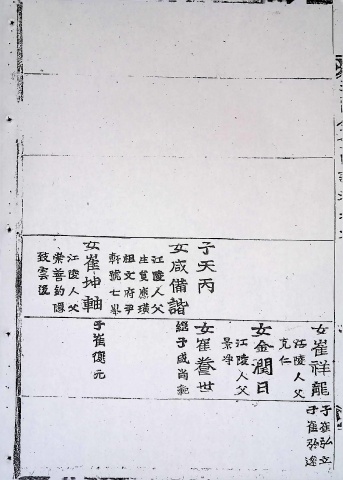 子天丙
女咸備諧
江陵人父
生員應璜
祖文府尹
軒號七峯
女崔坤軸
江陵人父
崇善鈞隱
致雲后
女崔祥龍
江陵人父
克仁
子崔弘立
子崔弥途
女金潤日
江陵人父
景宇
女崔養世
繼子咸尚範
子崔億元